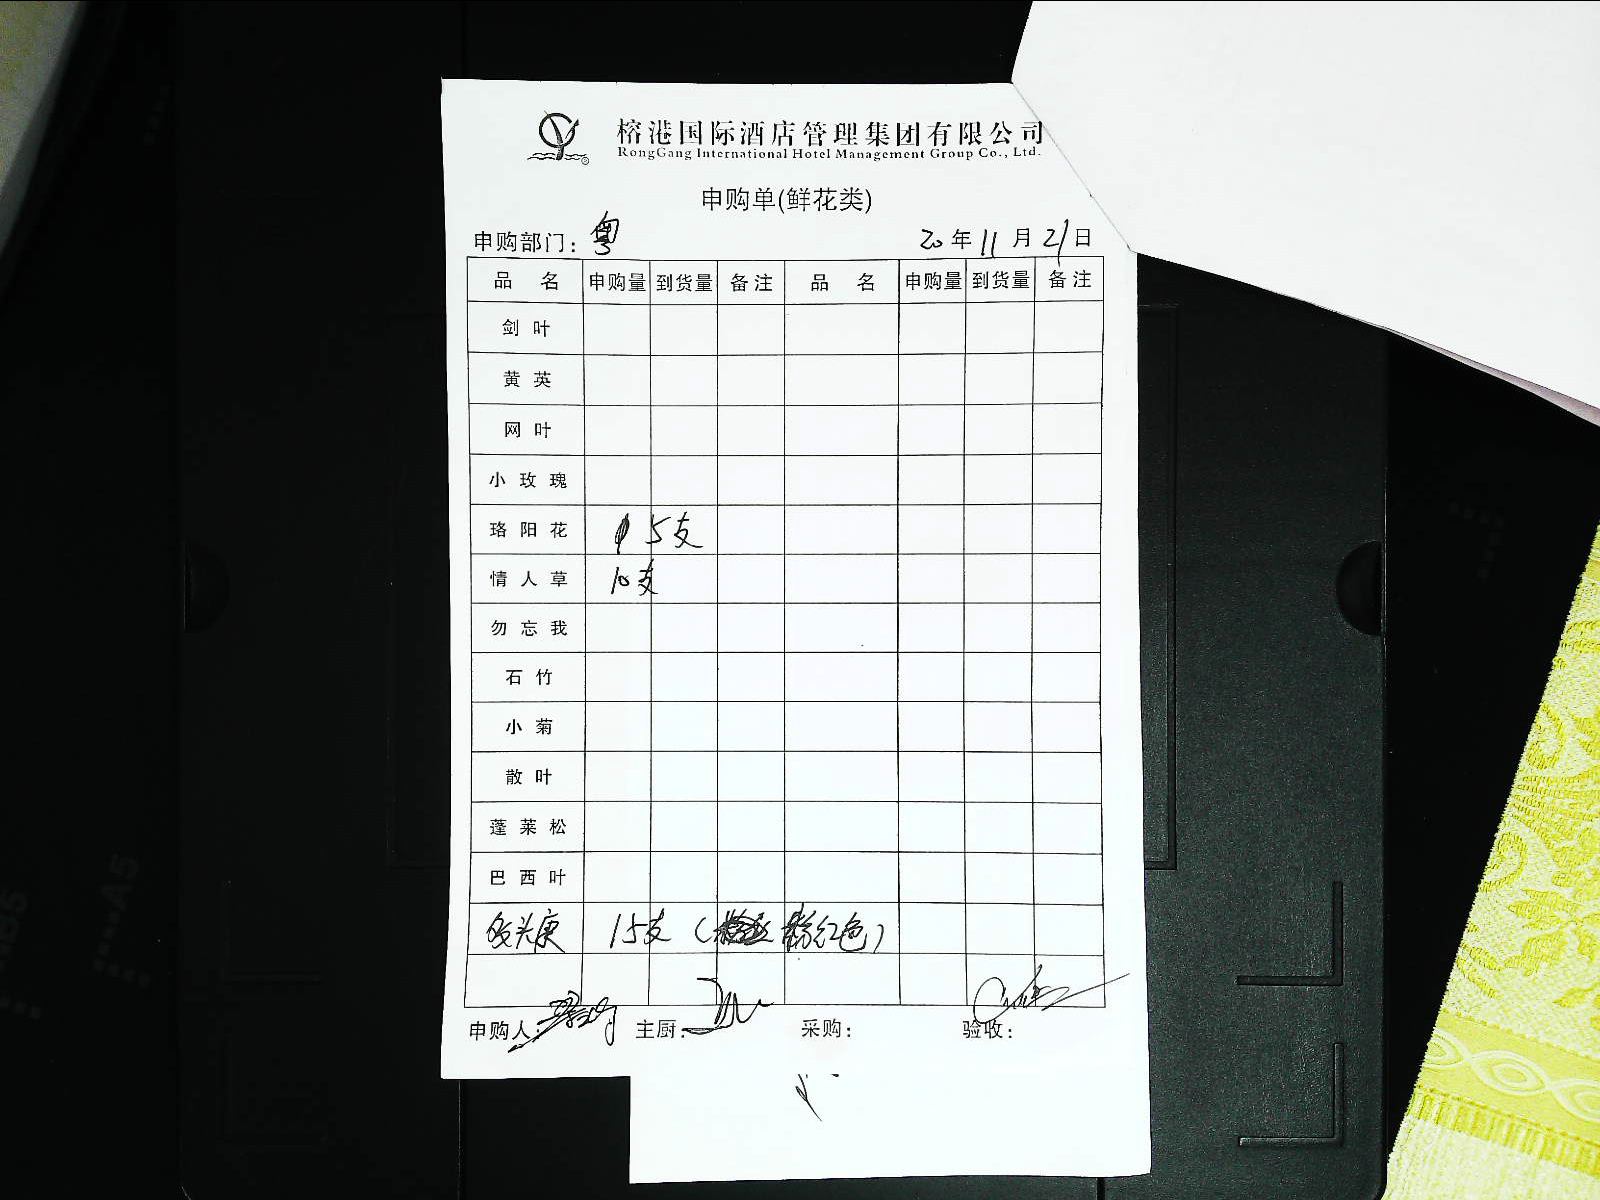 榕港国际酒店管理集团有限公司
RongGang International Hotel Management Group Co., Ltd.
申购单(鲜花类)
申购部门：粤 20年11月21日
品名 申购量 到货量 备注 品名 申购量 到货量 备注
剑叶
黄英
网叶
小玫瑰
珞阳花 5支
情人草 10支
勿忘我
石竹
小菊
散叶
蓬莱松
巴西叶
15支（粉红色）
申购人： 主厨： 采购： 验收：
A5
B5